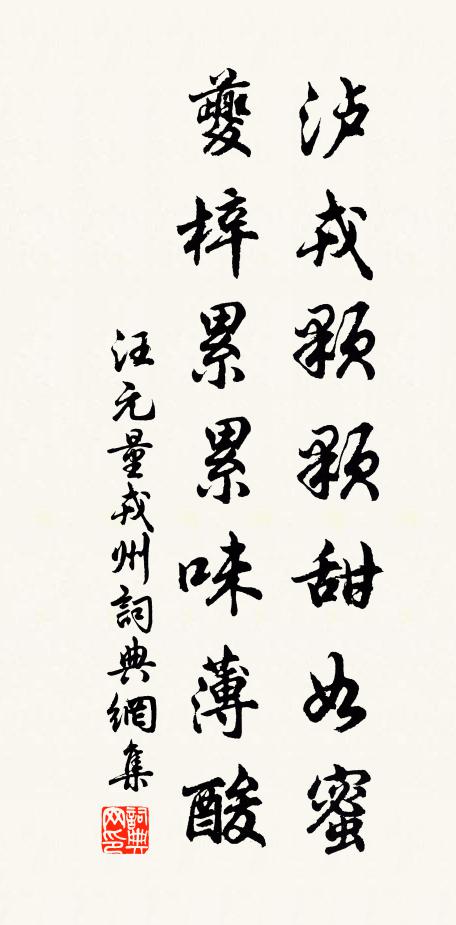 泸戎顆顆甜如蜜
夔梓累累味薄酸
汪元量戎州詞典網集
詞典网印